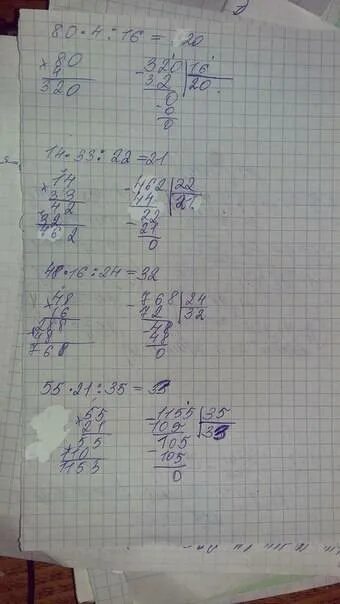 80·4:16=20
×80
4
320
-320|16
32|20
-0
0
0
14·33:22=21
×14
33
42
42
462
-462|22
44|21
22
-21
0
48·16:24=32
×48
16
288
48
768
-768|24
72|32
-48
48
0
55·21:35=33
×55
21
55
110
1155
-1155|35
105|33
105
-105
0